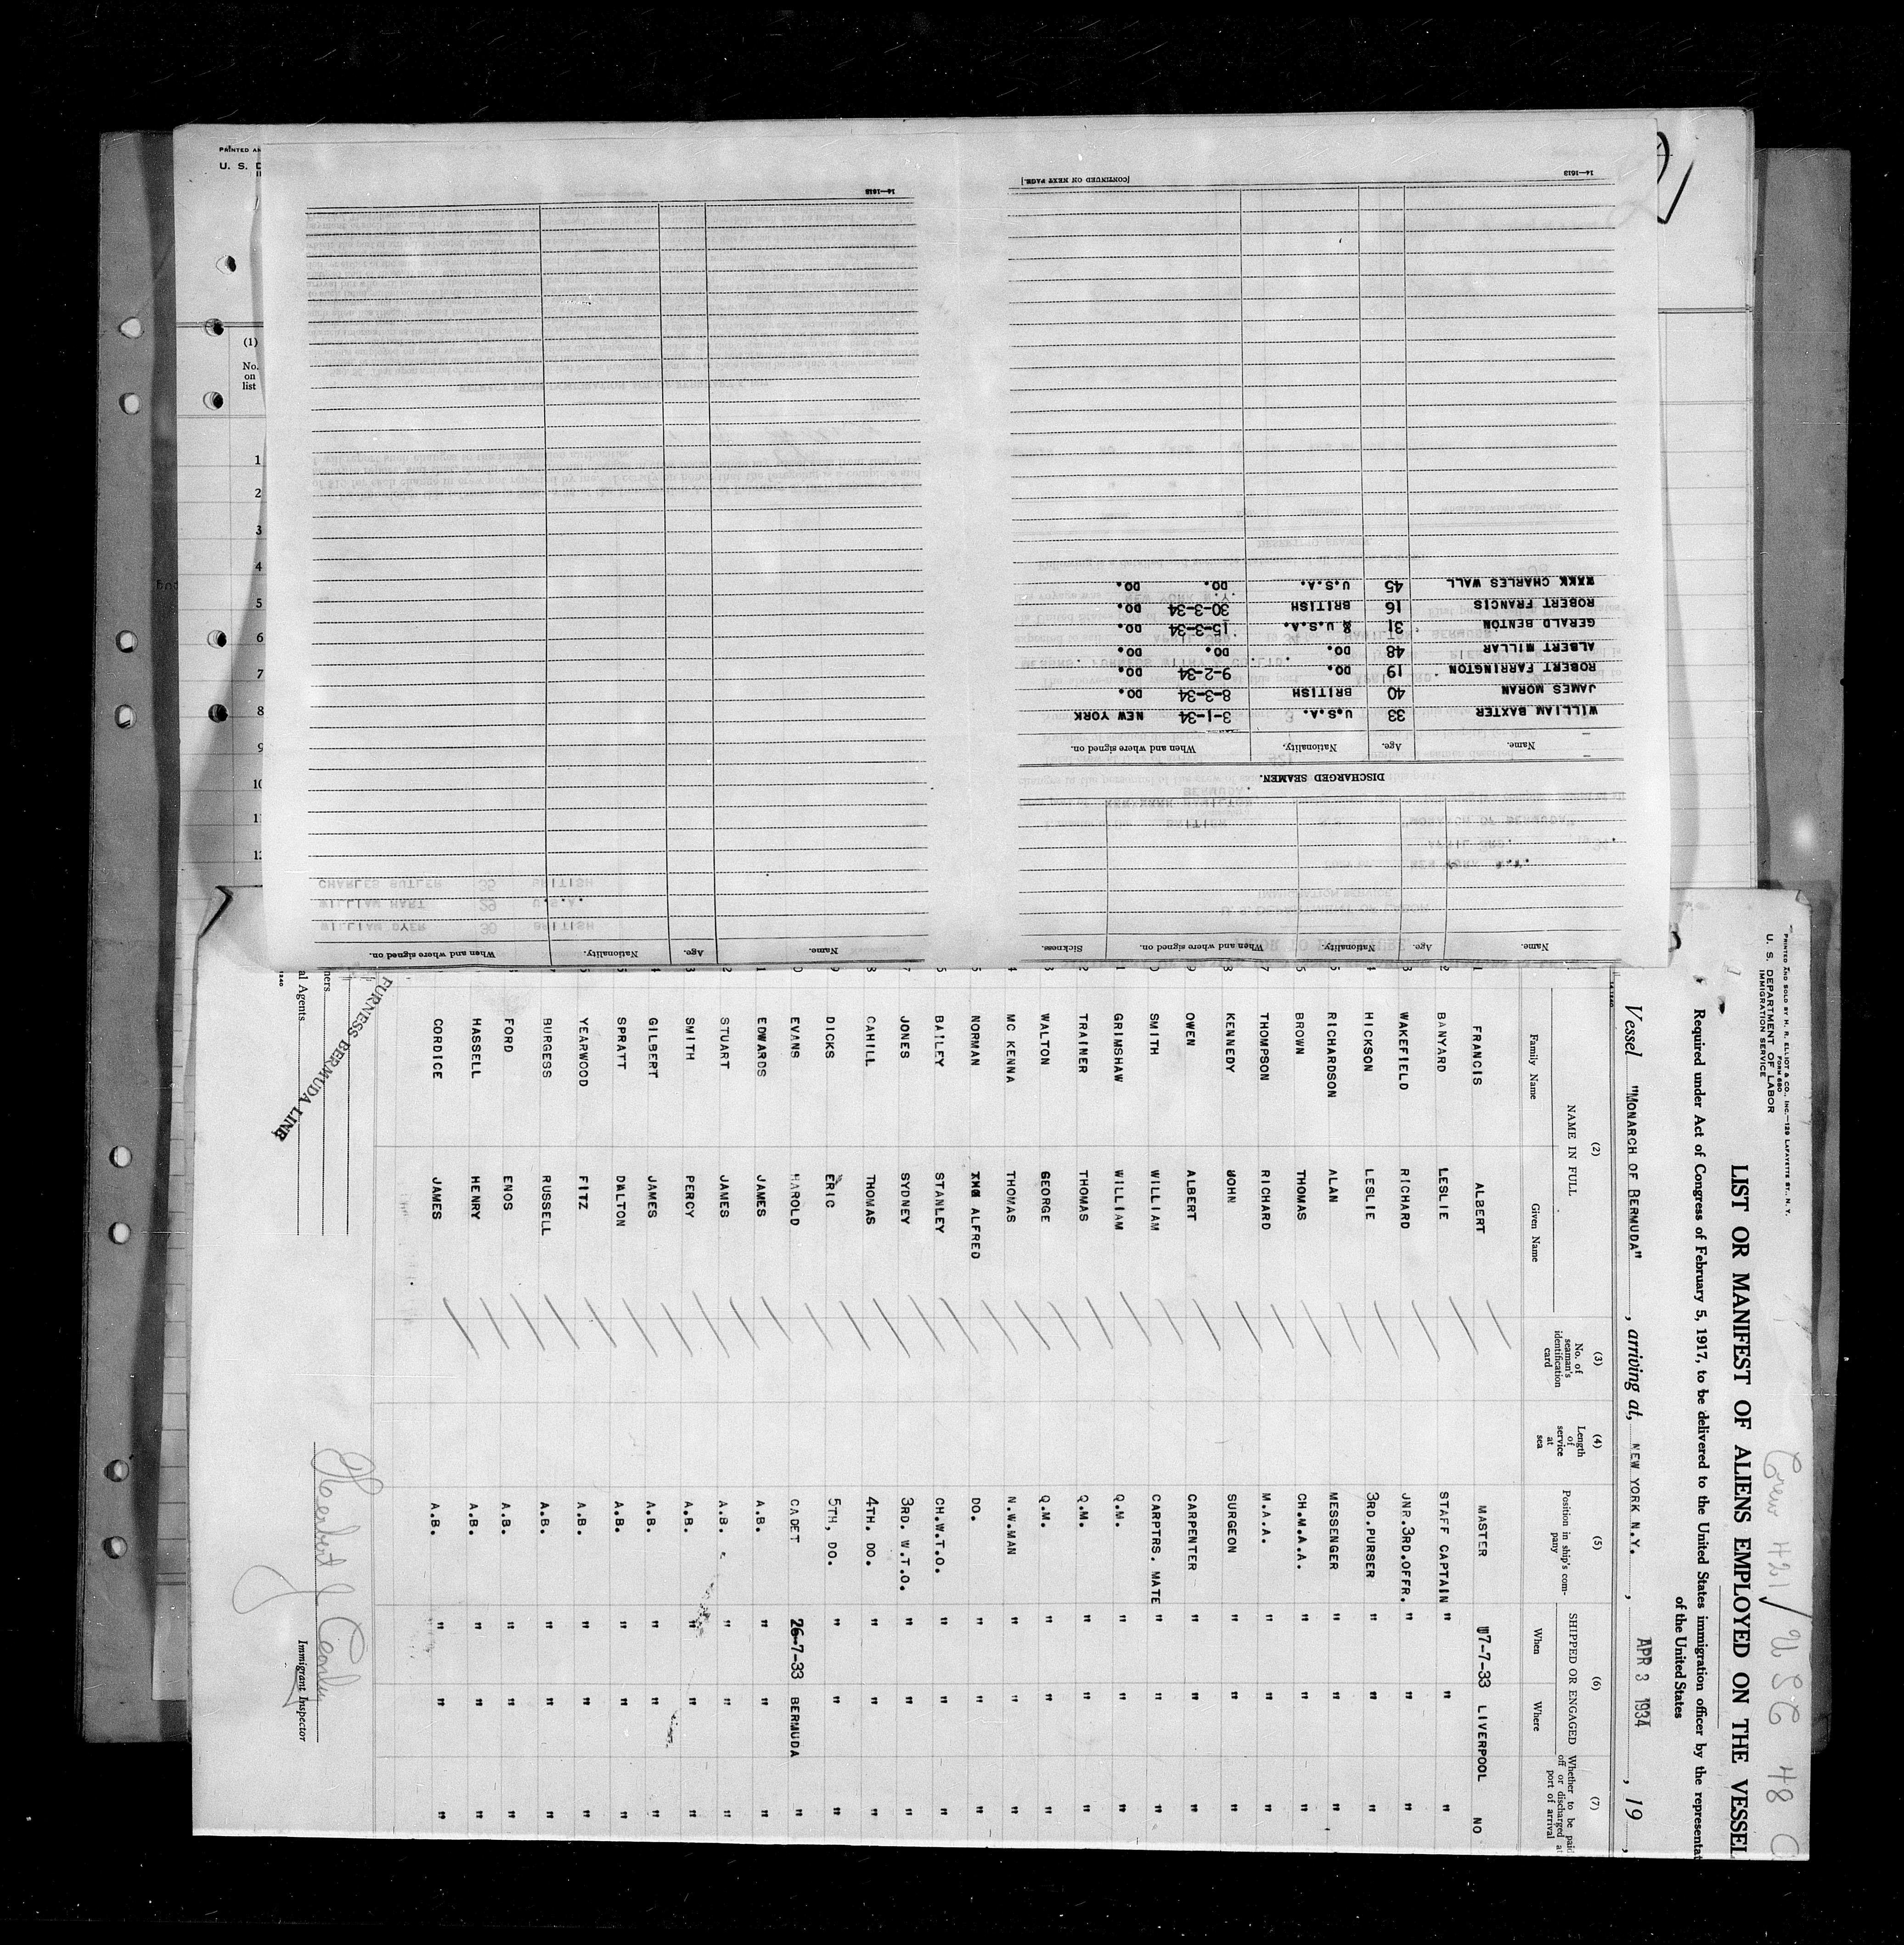 PRINTED AND SOLD BY H. R. ELLIOT & CO., INC.—129 LAFAYETTE ST., N. Y.
FORM 680
U. S. DEPARTMENT OF LABOR
IMMIGRATION SERVICE
Crew 421/ U S C 48
LIST OR MANIFEST OF ALIENS EMPLOYED ON THE VESSEL
Required under Act of Congress of February 5, 1917, to be delivered to the United States immigration officer by the representat
of the United States
Vessel "MONARCH OF BERMUDA", arriving at, NEW YORK N.Y., APR 3 1934, 19
(2) (3) (4) (5) (6) (7)
NAME IN FULL
Family Name Given Name
No. of seaman's identification card
Length of service at sea
Position in ship's company
SHIPPED OR ENGAGED
When Where
Whether to be paid off or discharged at port of arrival
FRANCIS ALBERT MASTER 17-7-33 LIVERPOOL NO
BANYARD LESLIE STAFF CAPTAIN " " "
WAKEFIELD RICHARD JNR.3RD.OFFR. " " "
HICKSON LESLIE 3RD.PURSER " " "
RICHARDSON ALAN MESSENGER " " "
BROWN THOMAS CH.M.A.A. " " "
THOMPSON RICHARD M.A.A. " " "
KENNEDY JOHN SURGEON " " "
OWEN ALBERT CARPENTER " " "
SMITH WILLIAM CARPTRS. MATE " " "
GRIMSHAW WILLIAM Q.M. " " "
TRAINER THOMAS Q.M. " " "
WALTON GEORGE Q.M. " " "
MC KENNA THOMAS N.W.MAN " " "
NORMAN ALFRED DO. " " "
BAILEY STANLEY CH.W.T.O. " " "
JONES SYDNEY 3RD. W.T.O. " " "
CAHILL THOMAS 4TH. DO. " " "
DICKS ERIC 5TH, DO. " " "
EVANS HAROLD CADET 26-7-33 BERMUDA "
EDWARDS JAMES A.B. " " "
STUART JAMES A.B. " " "
SMITH PERCY A.B. " " "
GILBERT JAMES A.B. " " "
SPRATT DALTON A.B. " " "
YEARWOOD FITZ A.B. " " "
BURGESS RUSSELL A.B. " " "
FORD ENOS A.B. " " "
HASSELL HENRY A.B. " " "
CORDICE JAMES A.B. " " "
FURNESS BERMUDA LINE
al Agents
Immigrant Inspector
Name. Age. Nationality. When and where signed on. Sickness.
DISCHARGED SEAMEN.
Name. Age. Nationality. When and where signed on.
WILLIAM BAXTER 33 U.S.A. 3-1-34 NEW YORK
JAMES MORAN 40 BRITISH 8-3-34 DO.
ROBERT FARRINGTON 19 DO. 9-2-34 DO.
ALBERT MILLAR 48 DO. DO. DO.
GERALD BENTON 31 U.S.A. 15-3-34 DO.
ROBERT FRANCIS 16 BRITISH 30-3-34 DO.
CHARLES WALL 45 U.S.A. DO. DO.
14—1613
[CONTINUED ON NEXT PAGE.]
Name. Age. Nationality. When and where signed on.
14—1613
PRINTED AN
U. S. D
(1)
No. on list
1
2
3
4
5
6
7
8
9
10
11
12